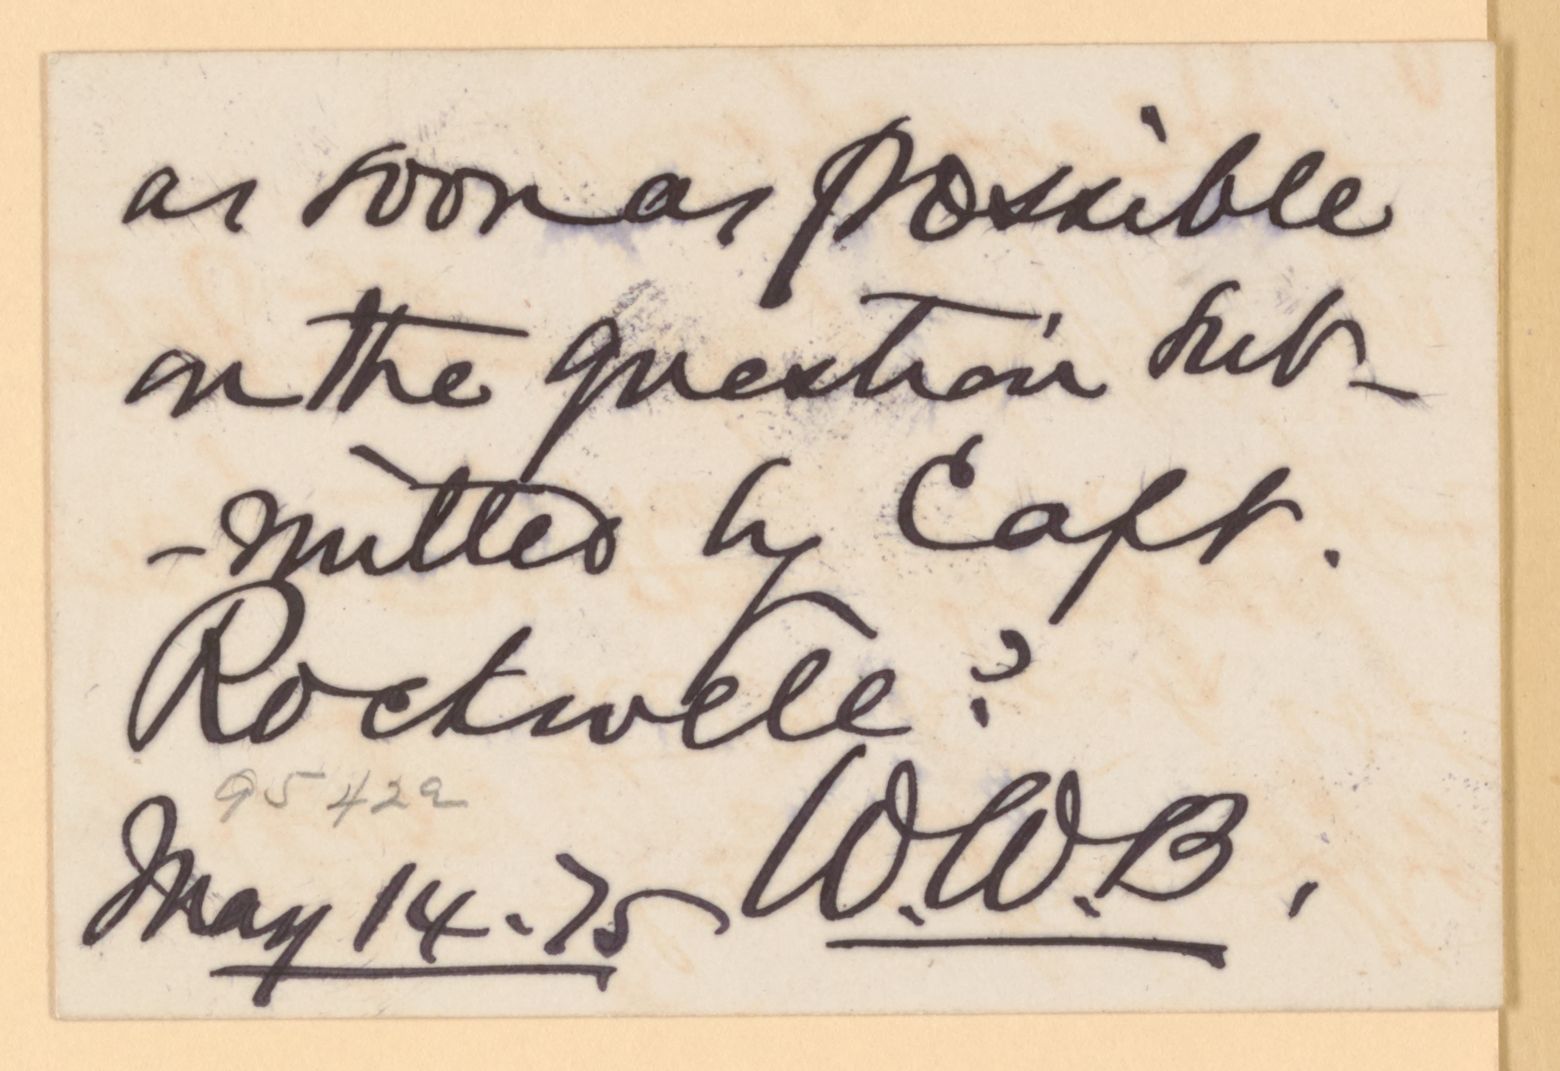 as soon as possible
on the question sub-
-mitted by Capt.
Rockwell?
95422
May 14.75 W.W.B.